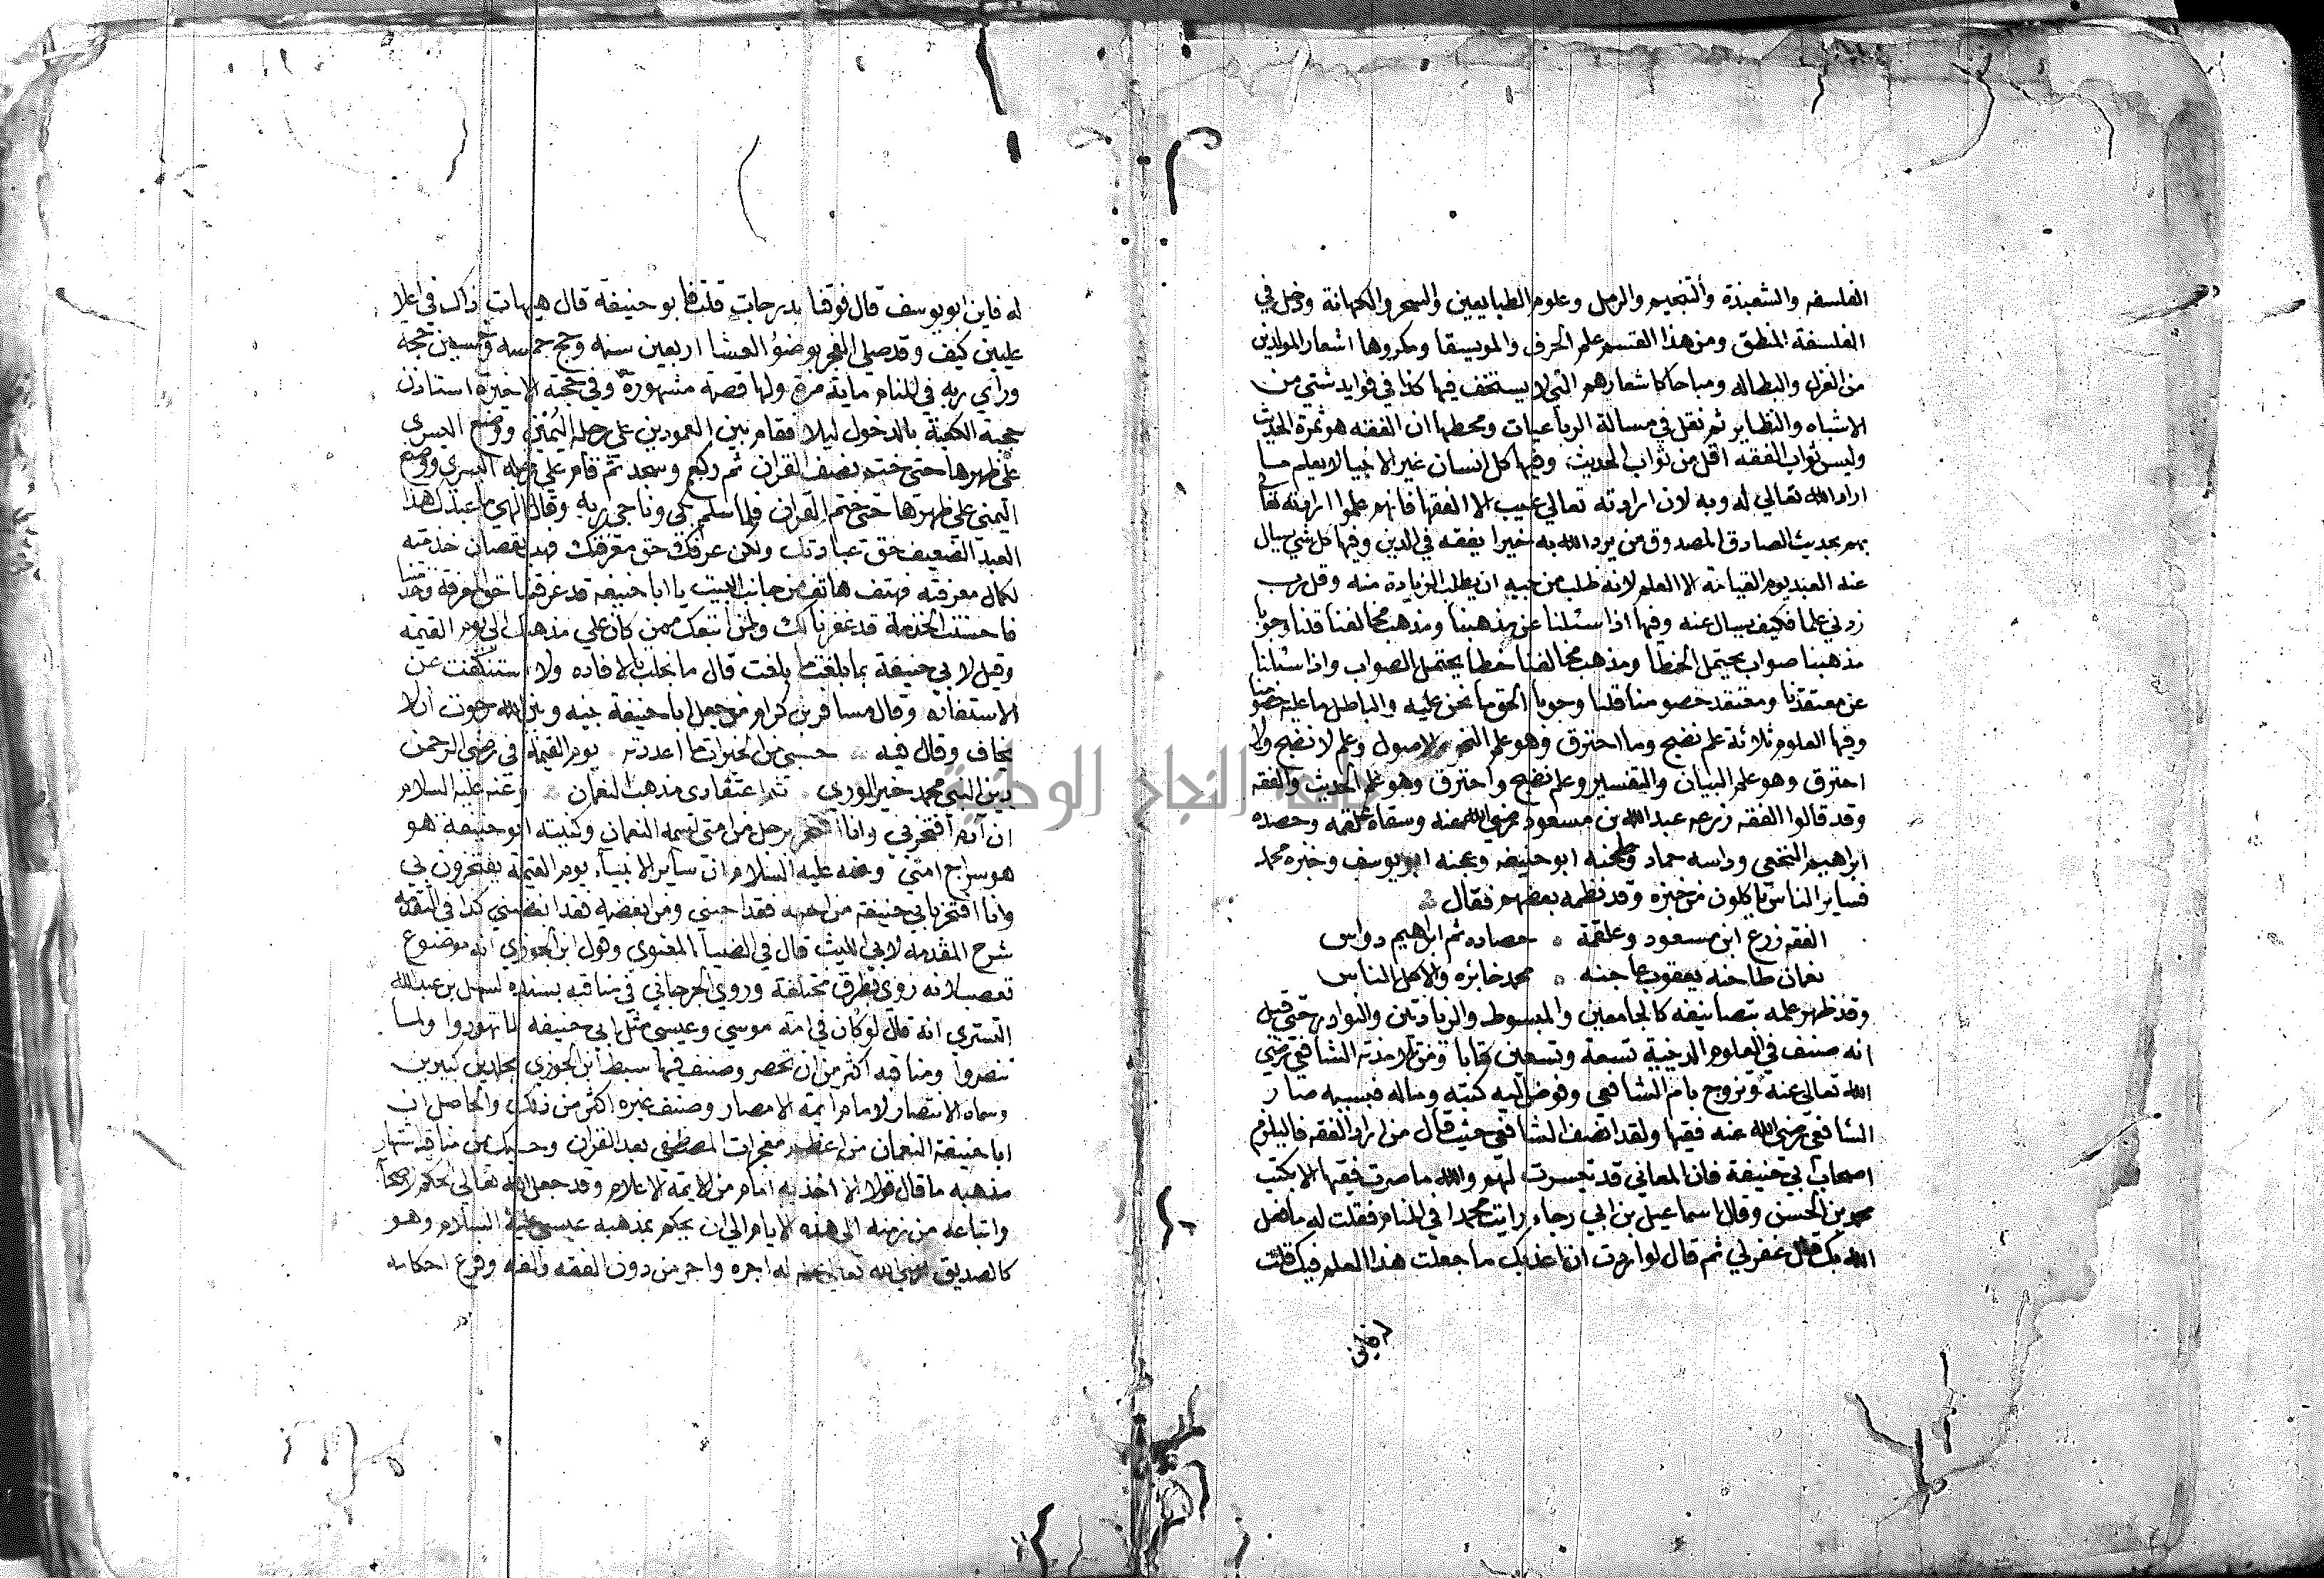 الفلسفه والشعبذة والتنجيم والرمل وعلوم الطبايعين والسحر والكهانة ودخل في
الفلسفة المنطق ومن هذا القسم علم الحرف والموسيقا ومكروها اشعار المولدين
من الغزل والبطاله ومباحا كاشعارهم التي لا يستخف فيها كذا في فوايد شتي من
الاشباه والنظاير ثم نقل في مسالة الرباعيات ومحطها ان الفقه هو ثمرة الحديث
وليس ثواب الفقه اقل من ثواب الحديث وفيها كل انسان غير الانبيا لا يعلم ما
اراد الله تعالي له وبه لان ارادته تعالي غيب الا الفقها فانهم علموا ارادته تعا
بهم بحديث الصادق المصدوق من يرد الله به خيرا يفقه في الدين وفيها كل شي يسال
عنه العبد يوم القيامة الا العلم لانه طلب من نبيه ان يطلب الزيادة منه وقل رب
زدني علما فكيف يسال عنه وفيها اذا سئلنا عن مذهبنا ومذهب مخالفنا قلنا وجوبا
مذهبنا صواب يحتمل الخطا ومذهب مخالفنا خطا يحتمل الصواب واذا سئلنا
عن معتقدنا ومعتقد خصومنا قلنا وجوبا الحق ما نحن عليه والباطل ما عليه خصومنا
وفيها العلوم ثلاثة علم نضج وما احترق وهو علم النحو والاصول وعلم لا نضج ولا
احترق وهو علم البيان والتفسير وعلم نضج واحترق وهو علم الحديث والفقه
وقد قالوا الفقه زرعه عبد الله بن مسعود رضي الله عنه وسقاه علقمه وحصده
ابراهيم النخعي وداسه حماد وطحنه ابو حنيفه وعجنه ابو يوسف وخبزه محمد
فساير الناس ياكلون من خبزه وقد نظمه بعضهم فقال
الفقه زرع ابن مسعود وعلقمة حصاده ثم ابراهيم دواس
نعمان طاحنه يعقوب عاجنه محمد خابزه والاكل الناس
وقد ظهر علمه بتصانيفه كالجامعين والمبسوط والزيادتين والنوادر حتي قيل
انه صنف في العلوم الدينية تسعة وتسعين كتابا ومن تلامذته الشافعي رضي
الله تعالي عنه وتزوج بام الشافعي وفوض اليه كتبه وماله فبسببه صار
الشافعي رضي الله عنه فقيها ولقد انصف الشافعي حيث قال من اراد الفقه فاليلزم
اصحاب ابي حنيفة فان المعاني قد تيسرت لهم والله ما صرت فقيها الا بكتب
محمد بن الحسن وقال اسماعيل بن ابي رجاء رايت محمدا في المنام فقلت له ما فعل
الله بك قال غفر لي ثم قال لو اردت ان اعذبك ما جعلت هذا العلم فيك قلت
له فاين ابو يوسف قال فوقنا بدرجات قلت فابو حنيفة قال هيهات ذاك في اعلا
عليين كيف وقد صلي الفجر بوضؤ العشا اربعين سنه وحج خمسه وخمسين حجة
وراي ربه في المنام ماية مرة ولها قصة مشهورة وفي حجته الاخيرة استاذن
حجبة الكعبة بالدخول ليلا فقام بين العمودين علي رجله اليمني ووضع اليسري
علي ظهرها حتي ختم نصف القران ثم ركع وسجد ثم قام علي رجله اليسري ووضع
اليمني علي ظهرها حتي ختم القران فلما سلم بكي وناجي ربه وقال الهي ما عبدك هذا
العبد الضعيف حق عبادتك ولكن عرفك حق معرفتك فهب نقصان خدمته
لكمال معرفته فهتف هاتف من جانب البيت يا ابا حنيفة قد عرفتنا حق المعرفة وخدمتنا
فاحسنت الخدمة قد غفرنا لك ولمن اتبعك ممن كان علي مذهبك الي يوم القيمة
وقيل لابي حنيفة بما بلغت ما بلغت قال ما بخلت بالافاده ولا استنكفت عن
الاستفاده وقال مسافر بن كرام من جعل ابا حنيفة بينه وبين الله رجوت ان لا
يخاف وقال فيه حسبي من الخيرات ما اعددته يوم القيمة في رضي الرحمن
دين النبي محمد خير الوري ثم اعتقادي مذهب النعمان وعنه عليه السلام
ان آدم افتخر بي وانا افتخر برجل من امتي اسمه النعمان وكنيته ابو حنيفة هو
هو سراج امتي وعنه عليه السلام ان ساير الانبيآء يوم القيمة يفتخرون بي
وانا افتخر بابي حنيفة من احبه فقد احبني ومن ابغضه فقد ابغضني كذا في التقدمه
شرح المقدمه لابي الليث قال في الضياء المعنوي وقول ابن الجوزي انه موضوع
تعصب لانه روي بطرق مختلفة وروي الجرجاني في مناقبه بسنده لسهل بن عبد الله
التستري انه قال لو كان في امة موسي وعيسي مثل ابي حنيفه لما تهودوا ولما
تنصروا ومناقبه اكثر من ان تحصر وصنف فيها سبط ابن الجوزي مجلدين كبيرين
وسماه الانتصار لامام ايمة الامصار وصنف غيره اكثر من ذلك والحاصل ان
ابا حنيفة النعمان من اعظم معجزات المصطفي بعد القران وحسبك من مناقبه اشتهار
مذهبه ما قال قولا الا اخذ به امام من الايمة الاعلام وقد جعل الله تعالي الحكم لاصحابه
واتباعه من زمنه الي هذه الايام الي ان يحكم بمذهبه عيسي عليه السلام وهو
كالصديق رضي الله تعالي عنه له اجره واجر من دون الفقه والفه وفرع احكامه
جامعة النجاح الوطنية